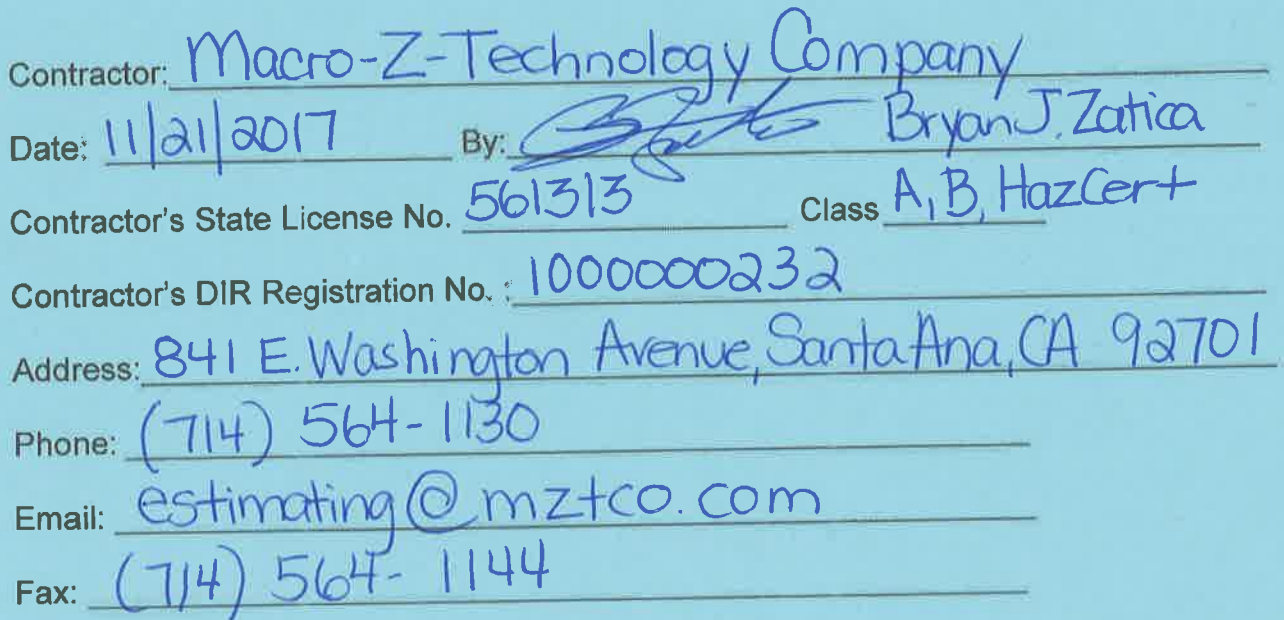 Contractor: Macro-Z-Technology Company
Date: 11/21/2017 By: Bryan J. Zatica
Contractor's State License No. 561313 Class A, B, HazCert
Contractor's DIR Registration No. : 1000000232
Address: 841 E. Washington Avenue, Santa Ana, CA 92701
Phone: (714) 564-1130
Email: estimating@mztco.com
Fax: (714) 564-1144